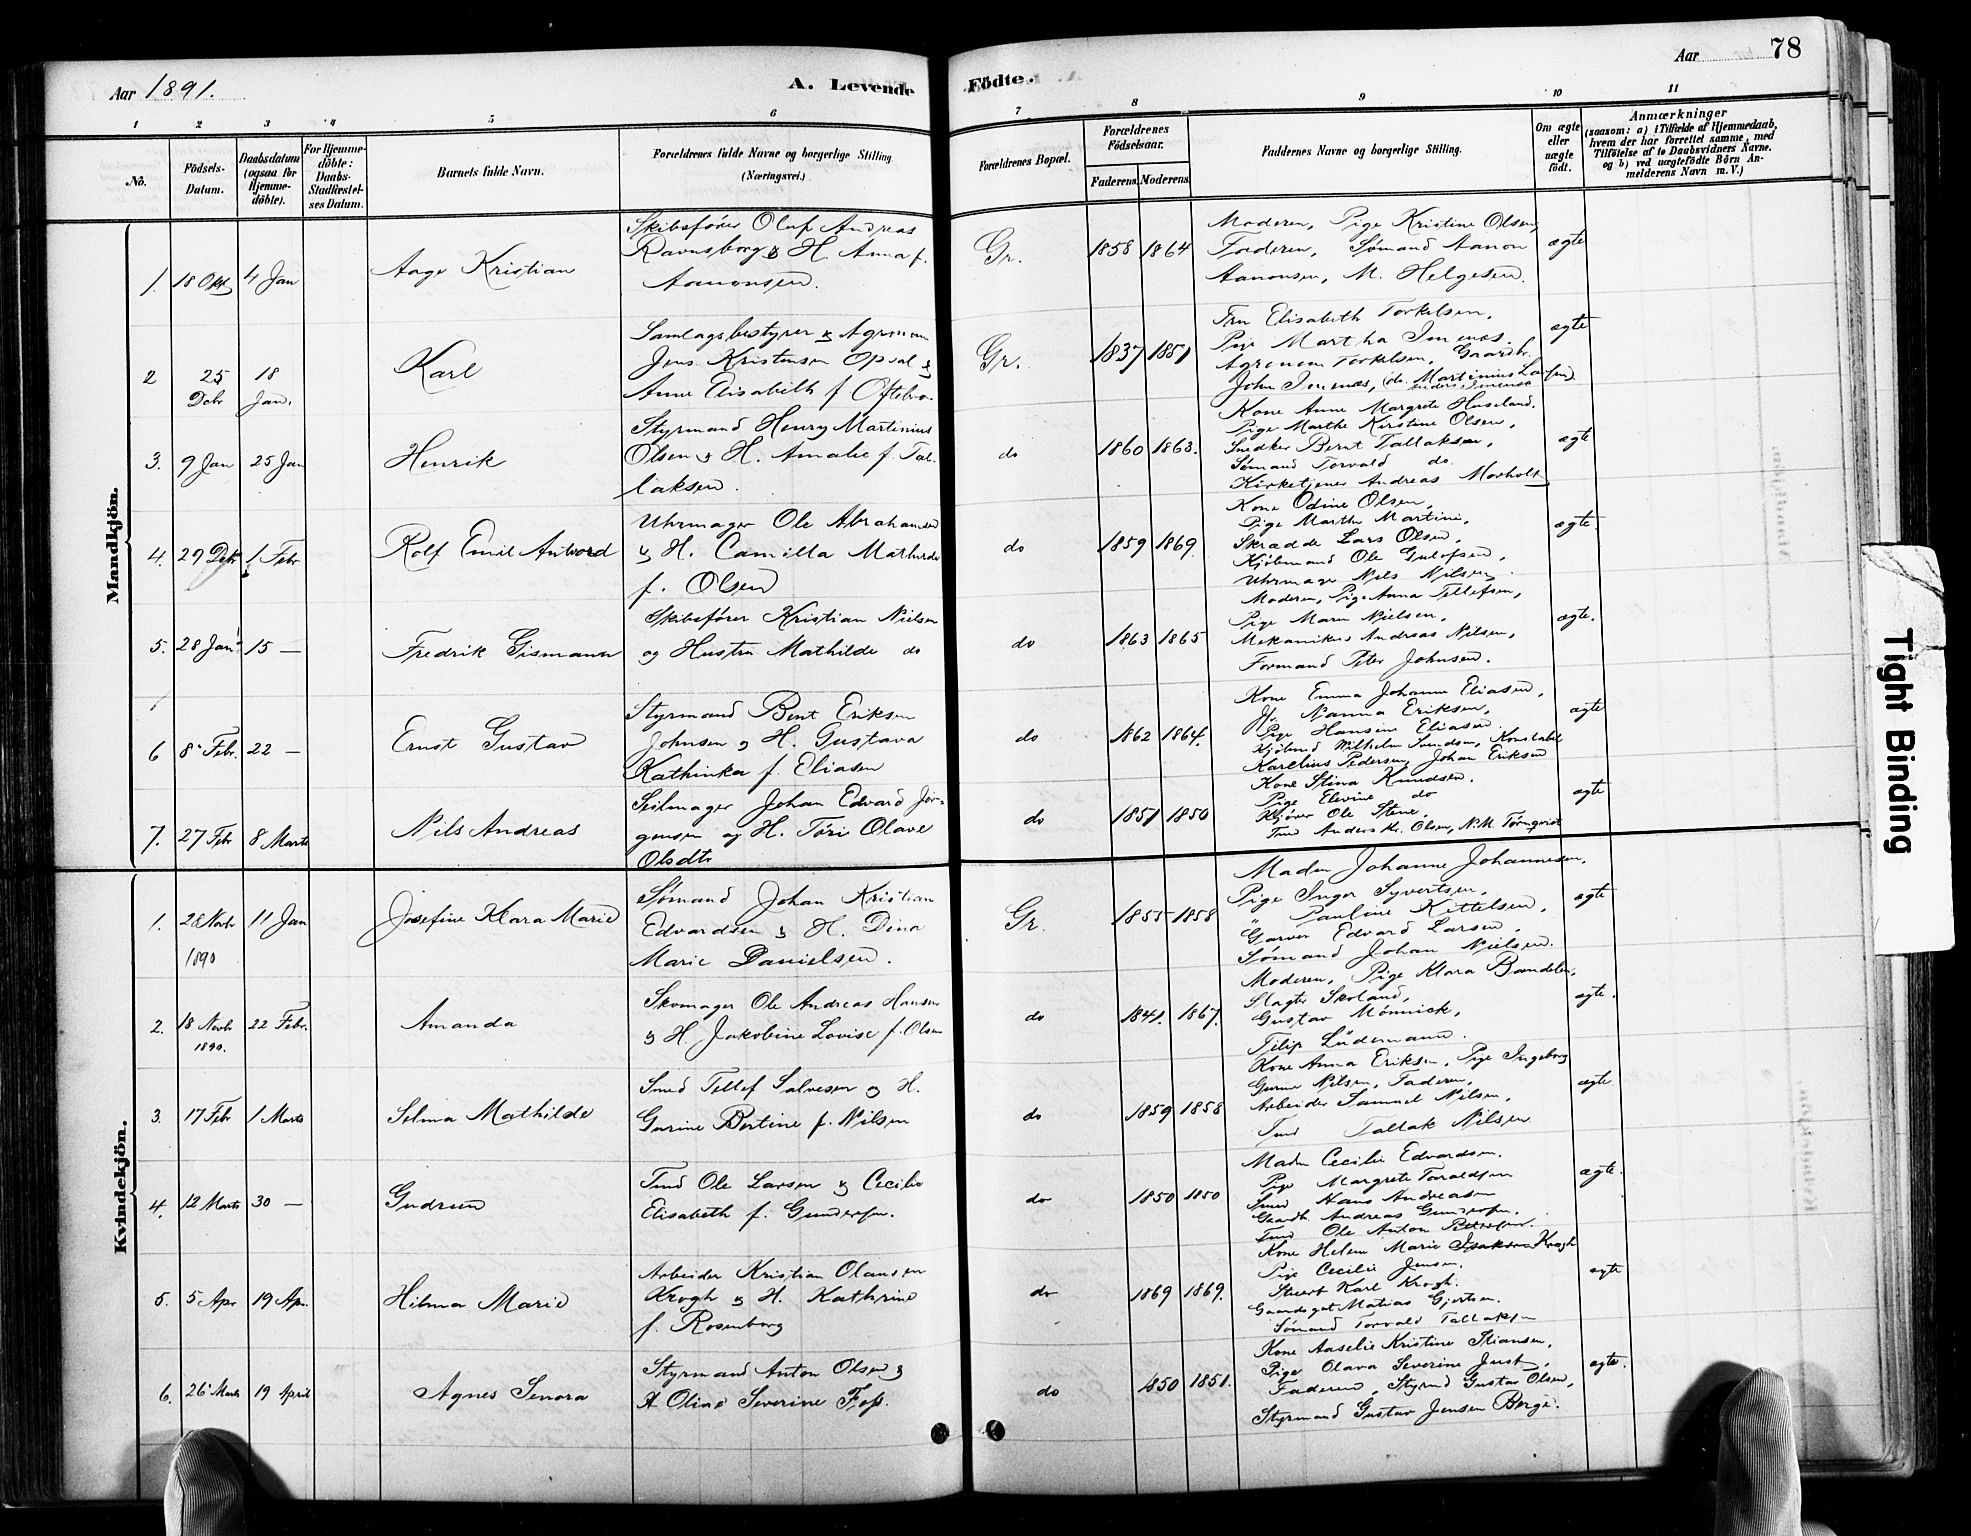 Aar 1891.
A. Levende
Födte.
Aar
78
1 2 3 4 5 6
7 8 9 10 11
No.
Födsels-Datum.
Daabsdatum (ogsaa for Hjemme-döbte).
For Hjemme-döbte: Daabs-Stadfæstel-ses Datum.
Barnets fulde Navn.
Forældrenes fulde Navne og borgerlige Stilling.
(Næringsvei.)
Forældrenes Bopæl.
Forældrenes Födselsaar.
Faderens. Moderens.
Faddernes Navne og borgerlige Stilling.
Om ægte eller uægte födt.
Anmærkninger
(saasom: a) i Tilfælde af Hjemmedaab,
hvem der har forrettet samme, med
Tilföielse af to Daabsvidners Navne.
og b) ved uægtefödte Börn An-
melderens Navn m. V.)
Mandkjön.
1. 18 Okt 4 Jan
Aage Kristian
Skibsfører Oluf Andreas
Ravnsborg & H. Anna f.
Aanonsen.
Gr. 1858 1864
Moderen, Pige Kristine Olsen,
Faderen, Sømand Aanon
Aanonsen, M. Helgesen.
ægte
2 25 Debr 18 Jan.
Karl
Samlagsbestyrer & Agronom
Jens Kristensen Opsal &
Anne Elisabeth f Oftebro.
Gr. 1837 1851
Fru Elisabeth Torkelsen,
Pige Martha Imenes.
Agronom Torkelsen, Gaardb.
John Imenæs, (do. Martinius Larsen)
ægte
3. 9 Jan 25 Jan
Henrik
Styrmand Henry Martinius
Olsen & H. Amalie f. Tal-
laksen.
do 1860 1863.
Kone Anne Margrete Huseland.
Pige Marthe Kirstine Olsen,
Snedker Bernt Tallaksen,
Sømand Torvald do.
Kirketjener Andreas Morholt
ægte
4. 29 Debr 1 Febr
Rolf Emil Antvord
Uhrmager Ole Abrahamsen
& H. Camilla Mathilde
f. Olsen
do 1859 1869.
Kone Odine Olsen,
Pige Marthe Martini,
Skrædde Lars Olsen,
Kjøbmand Ole Gulofsen,
Uhrmager Nils Nilsen,
ægte.
5. 28 Jan 15 —
Fredrik Gismann
Skibsfører Kristian Nielsen
og Hustru Mathilde do
do 1863 1865
Moderen, Pige Anna Tellefsen,
Pige Maren Nielsen,
Mekanikus Andreas Nilsen,
Formand Peter Johnsen.
ægte.
6 8 Febr. 22 —
Ernst Gustav
Styrmand Bent Eriksen
Johnsen & H. Gustava
Kathinka f. Eliasen
do 1862 1864.
Kone Emma Johanne Eliasen,
Jf. Nanna Eriksen,
Pige Hansine Eliasen.
Kjøbmd Wilhelm Svendsen, Konstabel
Karelius Pedersen, Johan Eriksen
ægte
7. 27 Febr 8 Marts
Nils Andreas
Seilmager Johan Edvard Jør-
gensen og H. Tøri Olave
Olsdtr
do 1851 1850
Kone Stina Knudsen.
Pige Elevine do
Kjører Ole Stene,
Tmd Anders Kr. Olsen, N.M. Tørnqvist
ægte
Kvindekjön.
1. 28 Novbr 1890 11 Jan
Josefine Klara Marie
Sømand Johan Kristian
Edvardsen & H. Dina
Marie Danielsen.
Gr. 1855 1858
Madm Johanne Johannesen,
Pige Inger Syvertsen,
" Pauline Kittelsen,
Garver Edvard Larsen,
Sømand Johan Nielsen.
ægte
2. 18 Novbr 1890. 22 Febr.
Amanda
Skomager Ole Andreas Hansen
& H. Jakobine Lovise f. Olsen
do 1841. 1867.
Moderen, Pige Klara Bandelin,
Slagter Skoland,
Gustav Mönnick,
Filip Lüdemann.
ægte.
3. 17 Febr 1 Marts
Selma Mathilde
Smed Tellef Salvesen og H.
Garine Bertine f. Nilsen
do 1859 1858
Kone Anna Eriksen, Pige Ingeborg
Gurine Nilsen, Faderen,
Arbeider Samuel Nilsen,
Tmd Tallak Nilsen
ægte
4. 12 Marts 30 —
Gudrun
Tmd Ole Larsen & Cecilie
Elisabeth f. Gundersen.
do 1850 1850
Madm Cecilie Edvardsen.
Pige Margrete Toraldsen
Smed Hans Andreasen
Gaardb. Andreas Gundersen.
Tmd Ole Anton Pettersen.
ægte.
5. 5 Apr 19 Apr.
Hilma Marie
Arbeider Kristian Olausen
Krogh & H. Kathrine
f. Rosenborg
do 1869 1869.
Kone Helene Marie Isaksen Krogh
Pige Cecilie Jensen.
Stuert Karl Krogh.
Gaardsgut Matias Gjertsen.
Sømand Torvald Tallaksen
ægte
6. 26 Marts 19 April
Agnes Senora
Styrmand Anton Olsen &
H Oline Severine Foss.
do 1850 1851.
Kone Aaselie Kristine Stiansen,
Pige Olava Severine Just,
Faderen, Styrmd Gustav Olsen,
Styrmand Gustav Jensen Berge.
ægte.
Tight Binding